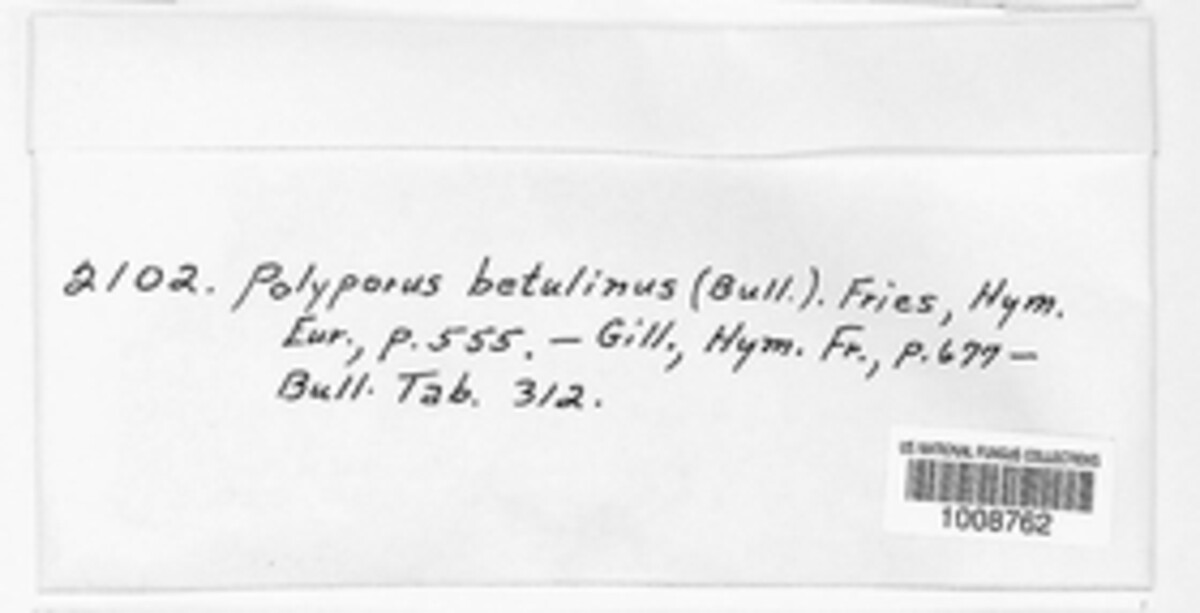 2102. Polyporus betulinus (Bull.). Fries, Hym.
Eur., p. 555. — Gill., Hym. Fr., p. 677 —
Bull. Tab. 312.
US NATIONAL FUNGUS COLLECTIONS
1008762